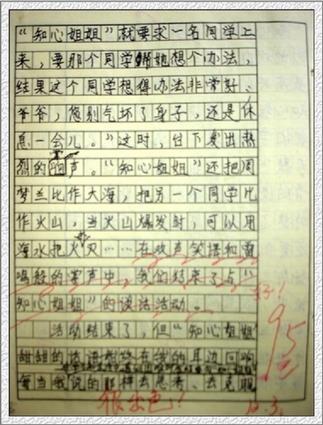 “知心姐姐”就要求一名同学上
来，要那个同学想个办法，
结果这个同学想得办法非常好：
爷爷，您别气坏了身子，还是休
息一会儿。”这时，台下发出热
烈的声。“知心姐姐”还把周
梦兰比作大海，把另一个同学比
作火山，当火山爆发时，可以用
海水把火灭……在欢声笑语和雷
鸣般的掌声中，我们结束了与“
知心姐姐”的谈话活动。
好！
活动结束了，但“知心姐姐”
甜甜的话语始终在我的耳边回响
每当我说的那样去思考、去克服
95
很出色！
12.3.